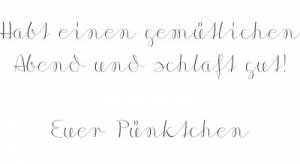 Habt einen gemütlichen
Abend und schlaft gut!
Euer Pünktchen